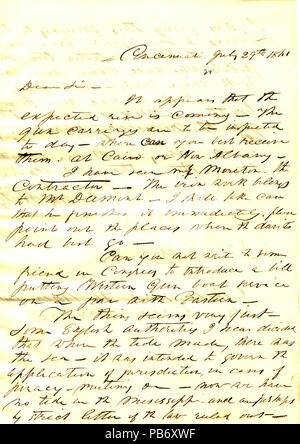 Cincinnati July 29th 1861
Dear Sir -
It appears that the
expected rise is coming - The
gun carriages are to be inspected
to day - when can you best receive
them, at Cairo or New Albany -
I have seen Mr Morton the
Contractor - The iron work belongs
to Mr Dumont - I shall take care
that he finishes it immediately, please
point out the places where the davits
had best go -
Can you not write to some
friend in Congress to introduce a bill
putting Western Gun boat service
on a par with Eastern -
The thing seems very just -
Some English Authority I hear decided
that when the tide made, there was
the sea - It was intended to govern the
application of jurisdiction, in cases of
piracy - mutiny &c - now we have
no tide in the Mississippi - and are perhaps
by strict letter of the law ruled out -
alamy
Image ID: PB6XWF
www.alamy.com